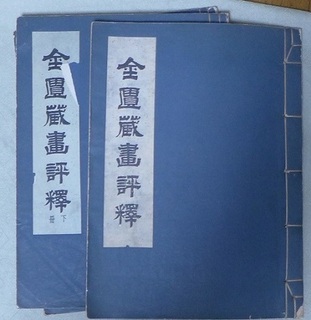 金匱藏畫評釋
下冊
金匱藏畫評釋